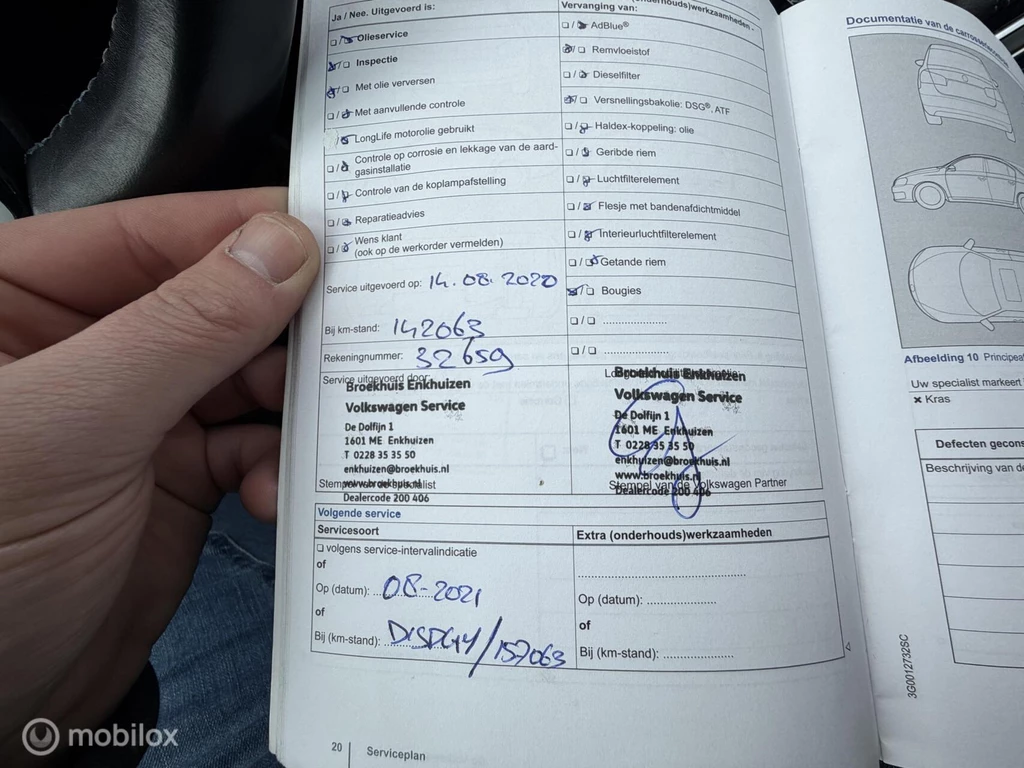 Ja / Nee. Uitgevoerd is:
❏/❏ Olieservice
❏/❏ Inspectie
❏/❏ Met olie verversen
❏/❏ Met aanvullende controle
/❏ LongLife motorolie gebruikt
❏/❏ Controle op corrosie en lekkage van de aard-
gasinstallatie
❏/❏ Controle van de koplampafstelling
❏/❏ Reparatieadvies
❏/❏ Wens klant
(ook op de werkorder vermelden)
Service uitgevoerd op: 14.08.2020
Bij km-stand: 142063
Rekeningnummer: 32659
Service uitgevoerd door:
Broekhuis Enkhuizen
Volkswagen Service
De Dolfijn 1
1601 ME Enkhuizen
T 0228 35 35 50
enkhuizen@broekhuis.nl
www.broekhuis.nl
Dealercode 200 406
(onderhouds)werkzaamheden -
Vervanging van:
❏/❏ AdBlue®
❏/❏ Remvloeistof
❏/❏ Dieselfilter
❏/❏ Versnellingsbakolie: DSG®, ATF
❏/❏ Haldex-koppeling: olie
❏/❏ Geribde riem
❏/❏ Luchtfilterelement
❏/❏ Flesje met bandenafdichtmiddel
❏/❏ Interieurluchtfilterelement
❏/❏ Getande riem
❏/❏ Bougies
❏/❏ .....................
❏/❏ .....................
Broekhuis Enkhuizen
Volkswagen Service
De Dolfijn 1
1601 ME Enkhuizen
T 0228 35 35 50
enkhuizen@broekhuis.nl
www.broekhuis.nl
Stempel van de Volkswagen Partner
Dealercode 200 406
Volgende service
Servicesoort
❏ volgens service-intervalindicatie
of
Op (datum): 08-2021
of
Bij (km-stand): DISPLAY/157063
Extra (onderhouds)werkzaamheden
Op (datum): .....................
of
Bij (km-stand): .....................
20 | Serviceplan
Documentatie van de
Afbeelding 10
Uw specialist markeert
× Kras
Defecten
Beschrijving van
3G0012732SC
mobilox